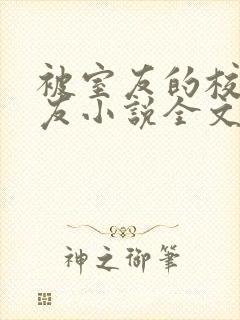 被室友的校
友小說全文
神之御筆